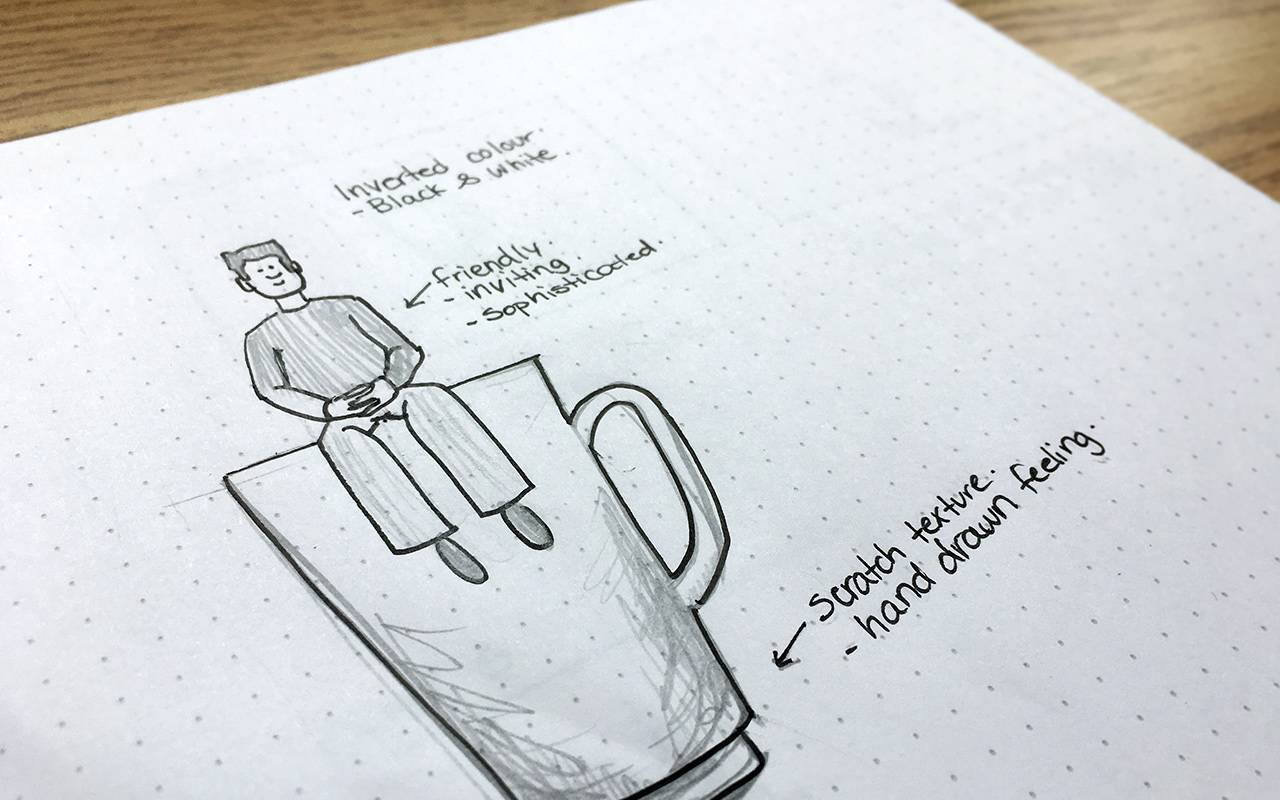 Inverted colour.
- Black & White.
friendly.
- inviting.
- Sophisticated.
Scratch texture.
- hand drawn feeling.